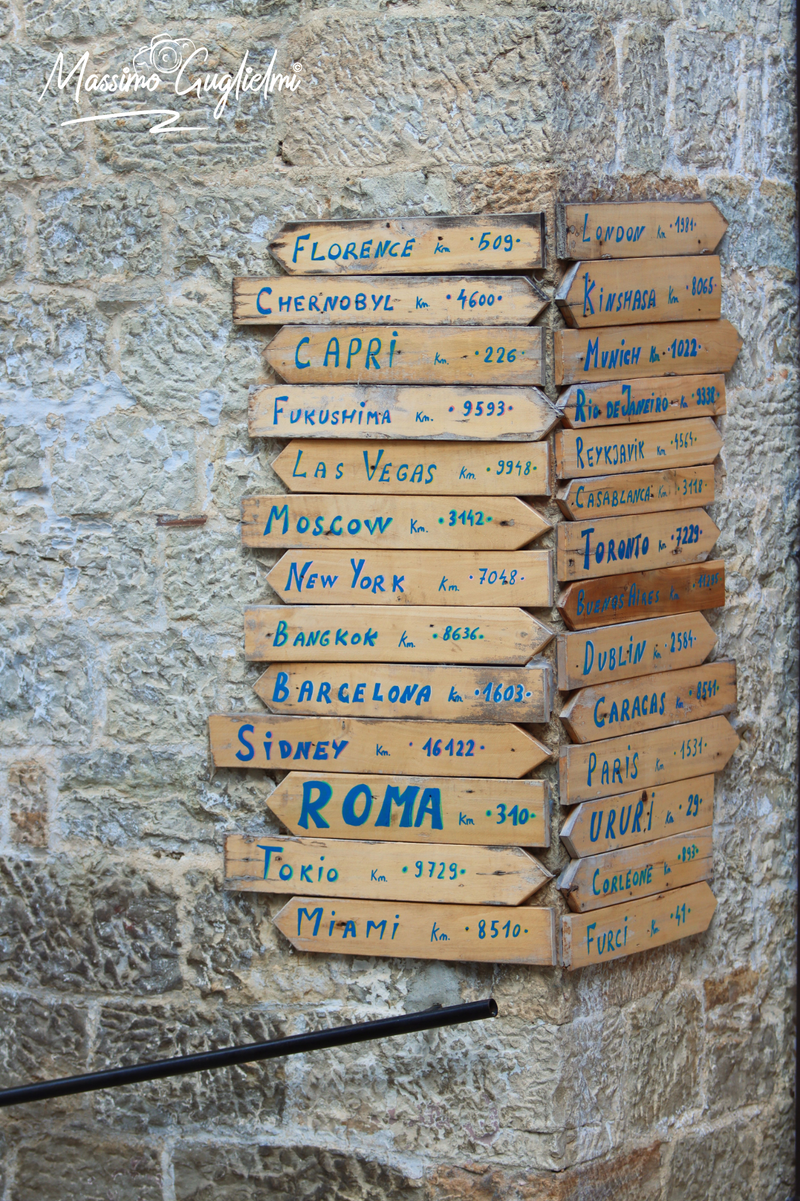 Massimo Guglielmi ©
FLORENCE Km ·509·
CHERNOBYL Km ·4600·
CAPRI Km. ·226·
FUKUSHIMA Km. ·9593·
LAS VEGAS Km. ·9948·
MOSCOW Km. ·3142·
NEW YORK Km. ·7048·
BANGKOK Km. ·8636·
BARCELONA Km ·1603·
SIDNEY Km. ·16122·
ROMA Km ·310·
TOKIO Km. ·9729·
MIAMI Km. ·8510·
LONDON Km ·1981·
KINSHASA Km ·8065
MUNICH Km ·1022·
RIO DE JANEIRO Km 9332·
REYKJAVIK Km ·4564·
CASABLANCA Km ·3118·
TORONTO Km ·7229·
BUENOS AIRES Km
DUBLIN Km ·2584·
CARACAS Km ·8541·
PARIS Km ·1531·
URURI Km ·29·
CORLEONE Km ·893·
FURCI Km ·41·